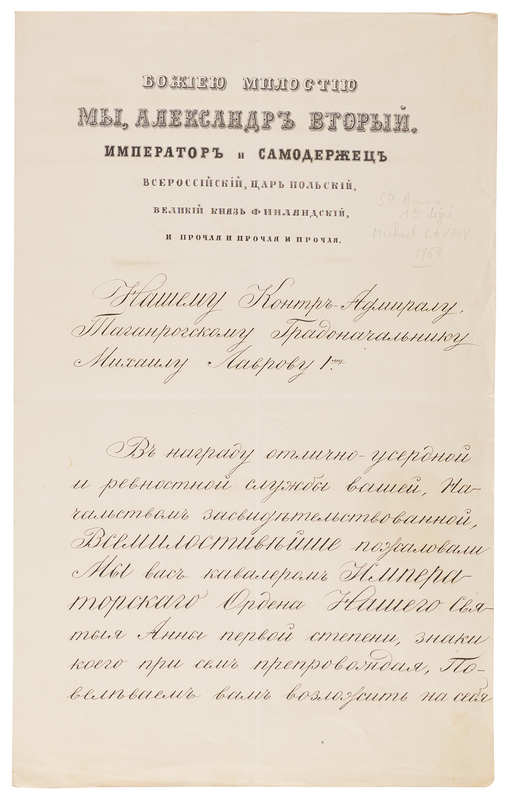 БОЖІЕЮ МИЛОСТІЮ
МЫ, АЛЕКСАНДРЪ ВТОРЫЙ.
ИМПЕРАТОРЪ и САМОДЕРЖЕЦЪ
ВСЕРОССІЙСКІЙ, ЦАРЬ ПОЛЬСКІЙ,
ВЕЛИКІЙ КНЯЗЬ ФИНЛЯНДСКІЙ,
И ПРОЧАЯ И ПРОЧАЯ И ПРОЧАЯ.
Ste Anne
Michael LAVROV
1863
Нашему Контръ-Адмиралу,
Таганрогскому Градоначальнику
Михаилу Лаврову 1му.
Въ награду отлично-усердной
и ревностной службы вашей, На-
чальствомъ засвидѣтельствованной,
Всемилостивѣйше пожаловали
Мы васъ кавалеромъ Импера-
торскаго Ордена Нашего Свя-
тыя Анны первой степени, знаки
коего при семъ препровождая, По-
велѣваемъ вамъ возложить на себя